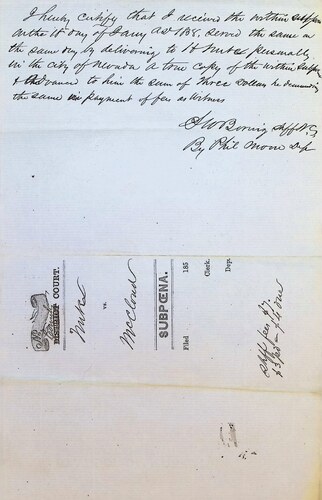 I hereby certify that I received the within Subpoena
on the 18th day of Jany AD 1858. Served the same on
the same day by delivering to H Nutes personally
in the city of Nevada a true copy of the within Subpoena
& Advanced to him the sum of Three Dollars he demanding
the same in payment of fee as witness
S W Boring Shff N. Co
By Phil Moore Dep
COURT.
vs.
McCloud
SUBPŒNA.
Filed 185
Clerk.
Dep.
Shff fees $7
$3 pd = $4 due